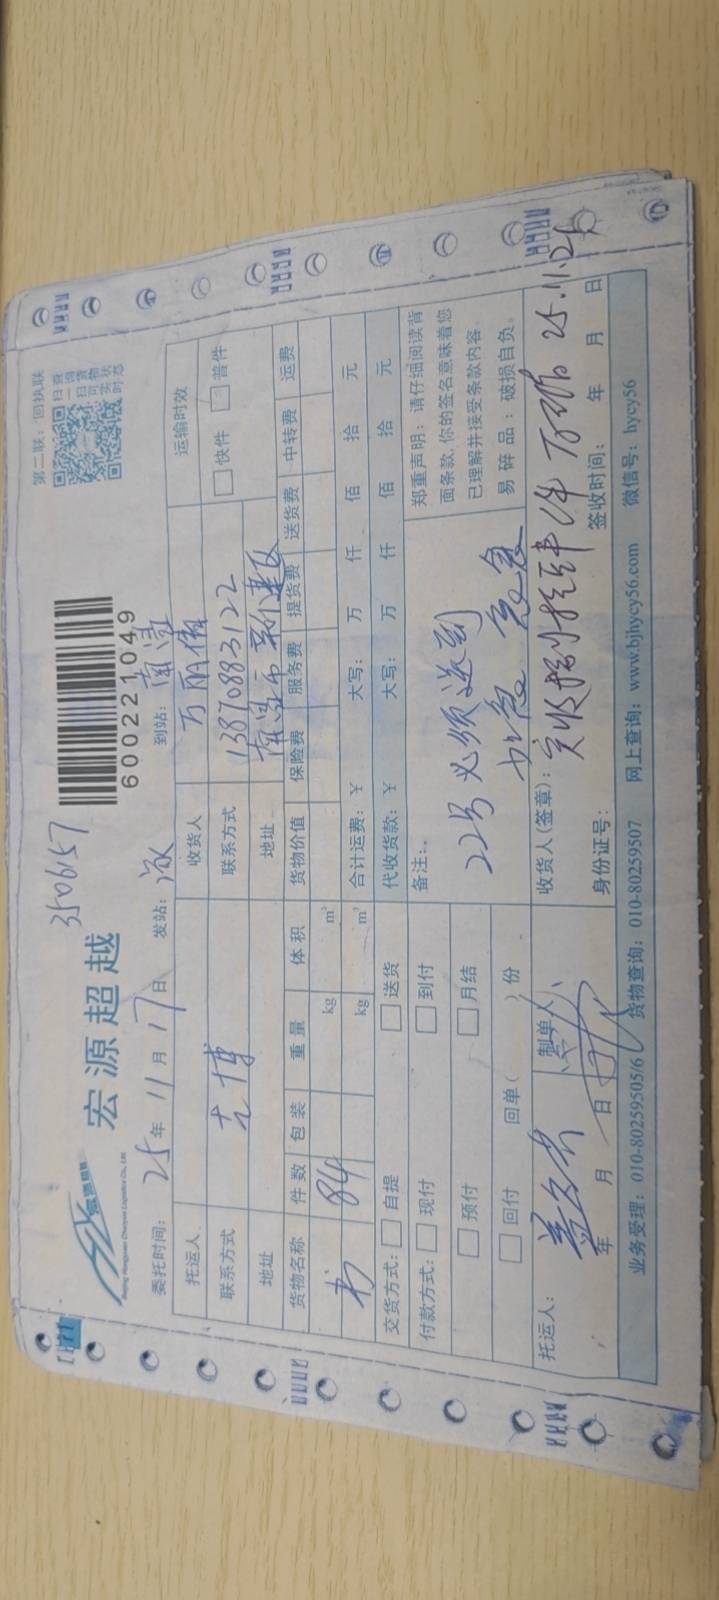 第二联：回执联
扫一扫查询货物实时状态
3506157
宏源超越
Beijing Hongyuan Chaoyue Logistics Co., Ltd
600221049
委托时间：25年11月17日 发站： 到站：南
托运人 收货人 万丽 运输时效
联系方式 龙博 联系方式 13870883122 快件 普件
地址 地址 南昌市新建区
货物名称 件数 包装 重量 体积 货物价值 保险费 服务费 提货费 送货费 中转费 运费
书 84 kg m³ 合计运费：¥ 大写： 万 仟 佰 拾 元
kg m³ 代收货款：¥ 大写： 万 仟 佰 拾 元
交货方式： 自提 送货 备注：
付款方式： 现付 到付
预付 月结
回付 回单（ ）份
22号必须送到
加急 急急
郑重声明：请仔细阅读背
面条款，你的签名意味着您
已理解并接受条款内容。
易碎品：破损自负。
托运人： 制单人： 收货人(签章)：实收捌拾肆件 25.11.21
年 月 日 身份证号： 签收时间： 年 月 日
业务受理：010-80259505/6 货物查询：010-80259507 网上查询：www.bjhycy56.com 微信号：hycy56